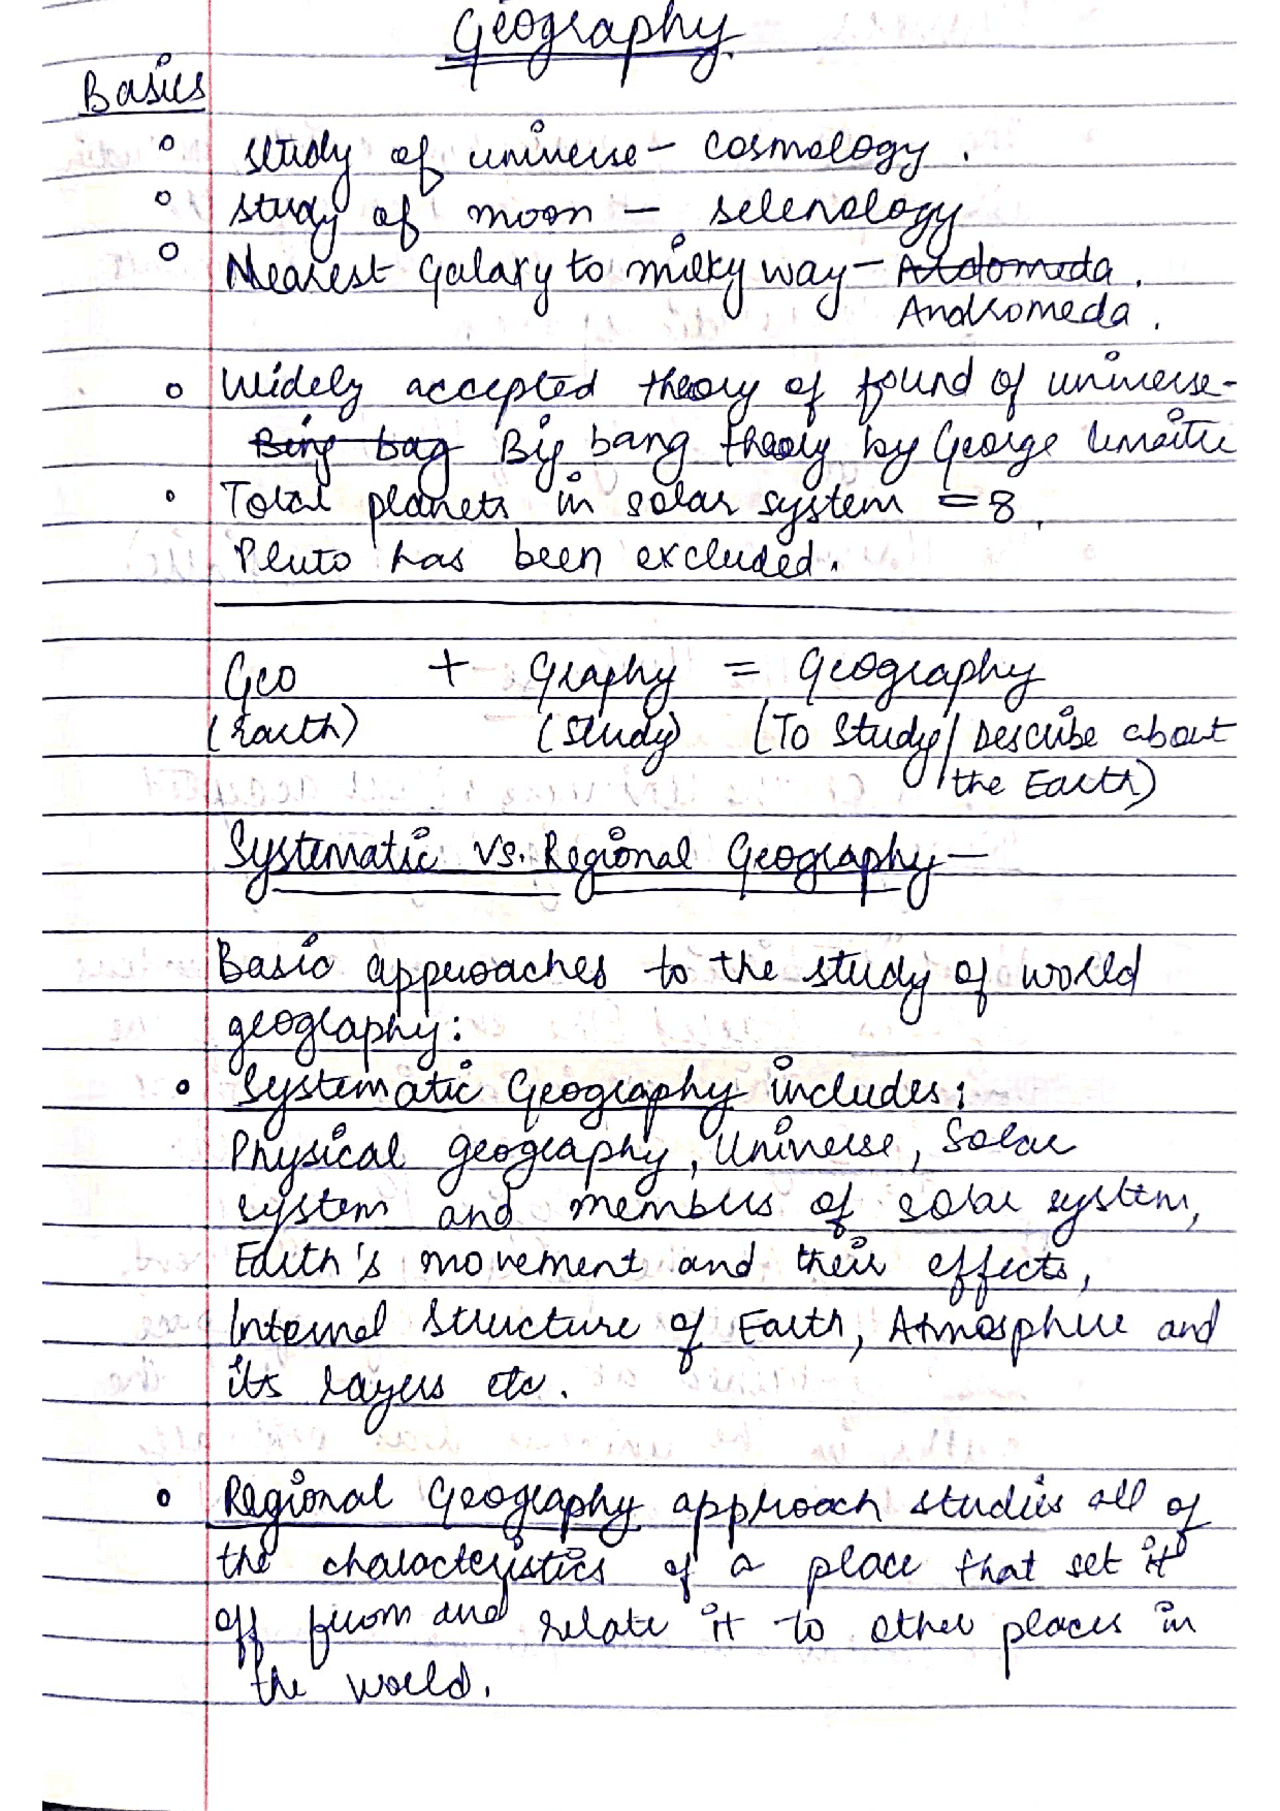 Geography
Basics
study of universe - cosmology.
study of moon - selenology
Nearest Galaxy to milky way - Aldomeda.
Andromeda.
Widely accepted theory of found of universe-
Bing bag Big bang theory by George lemaitre
Total planets in solar system = 8.
Pluto has been excluded.
Geo + Graphy = Geography
(Earth) (Study) (To Study/Describe about
the Earth)
Systematic vs. Regional Geography-
Basic approaches to the study of world
geography:
Systematic Geography includes:
Physical geography, Universe, Solar
system and members of solar system,
Earth's movement and their effects,
Internal Structure of Earth, Atmosphere and
its layers etc.
Regional Geography approach studies all of
the characteristics of a place that set it
off from and relate it to other places in
the world.